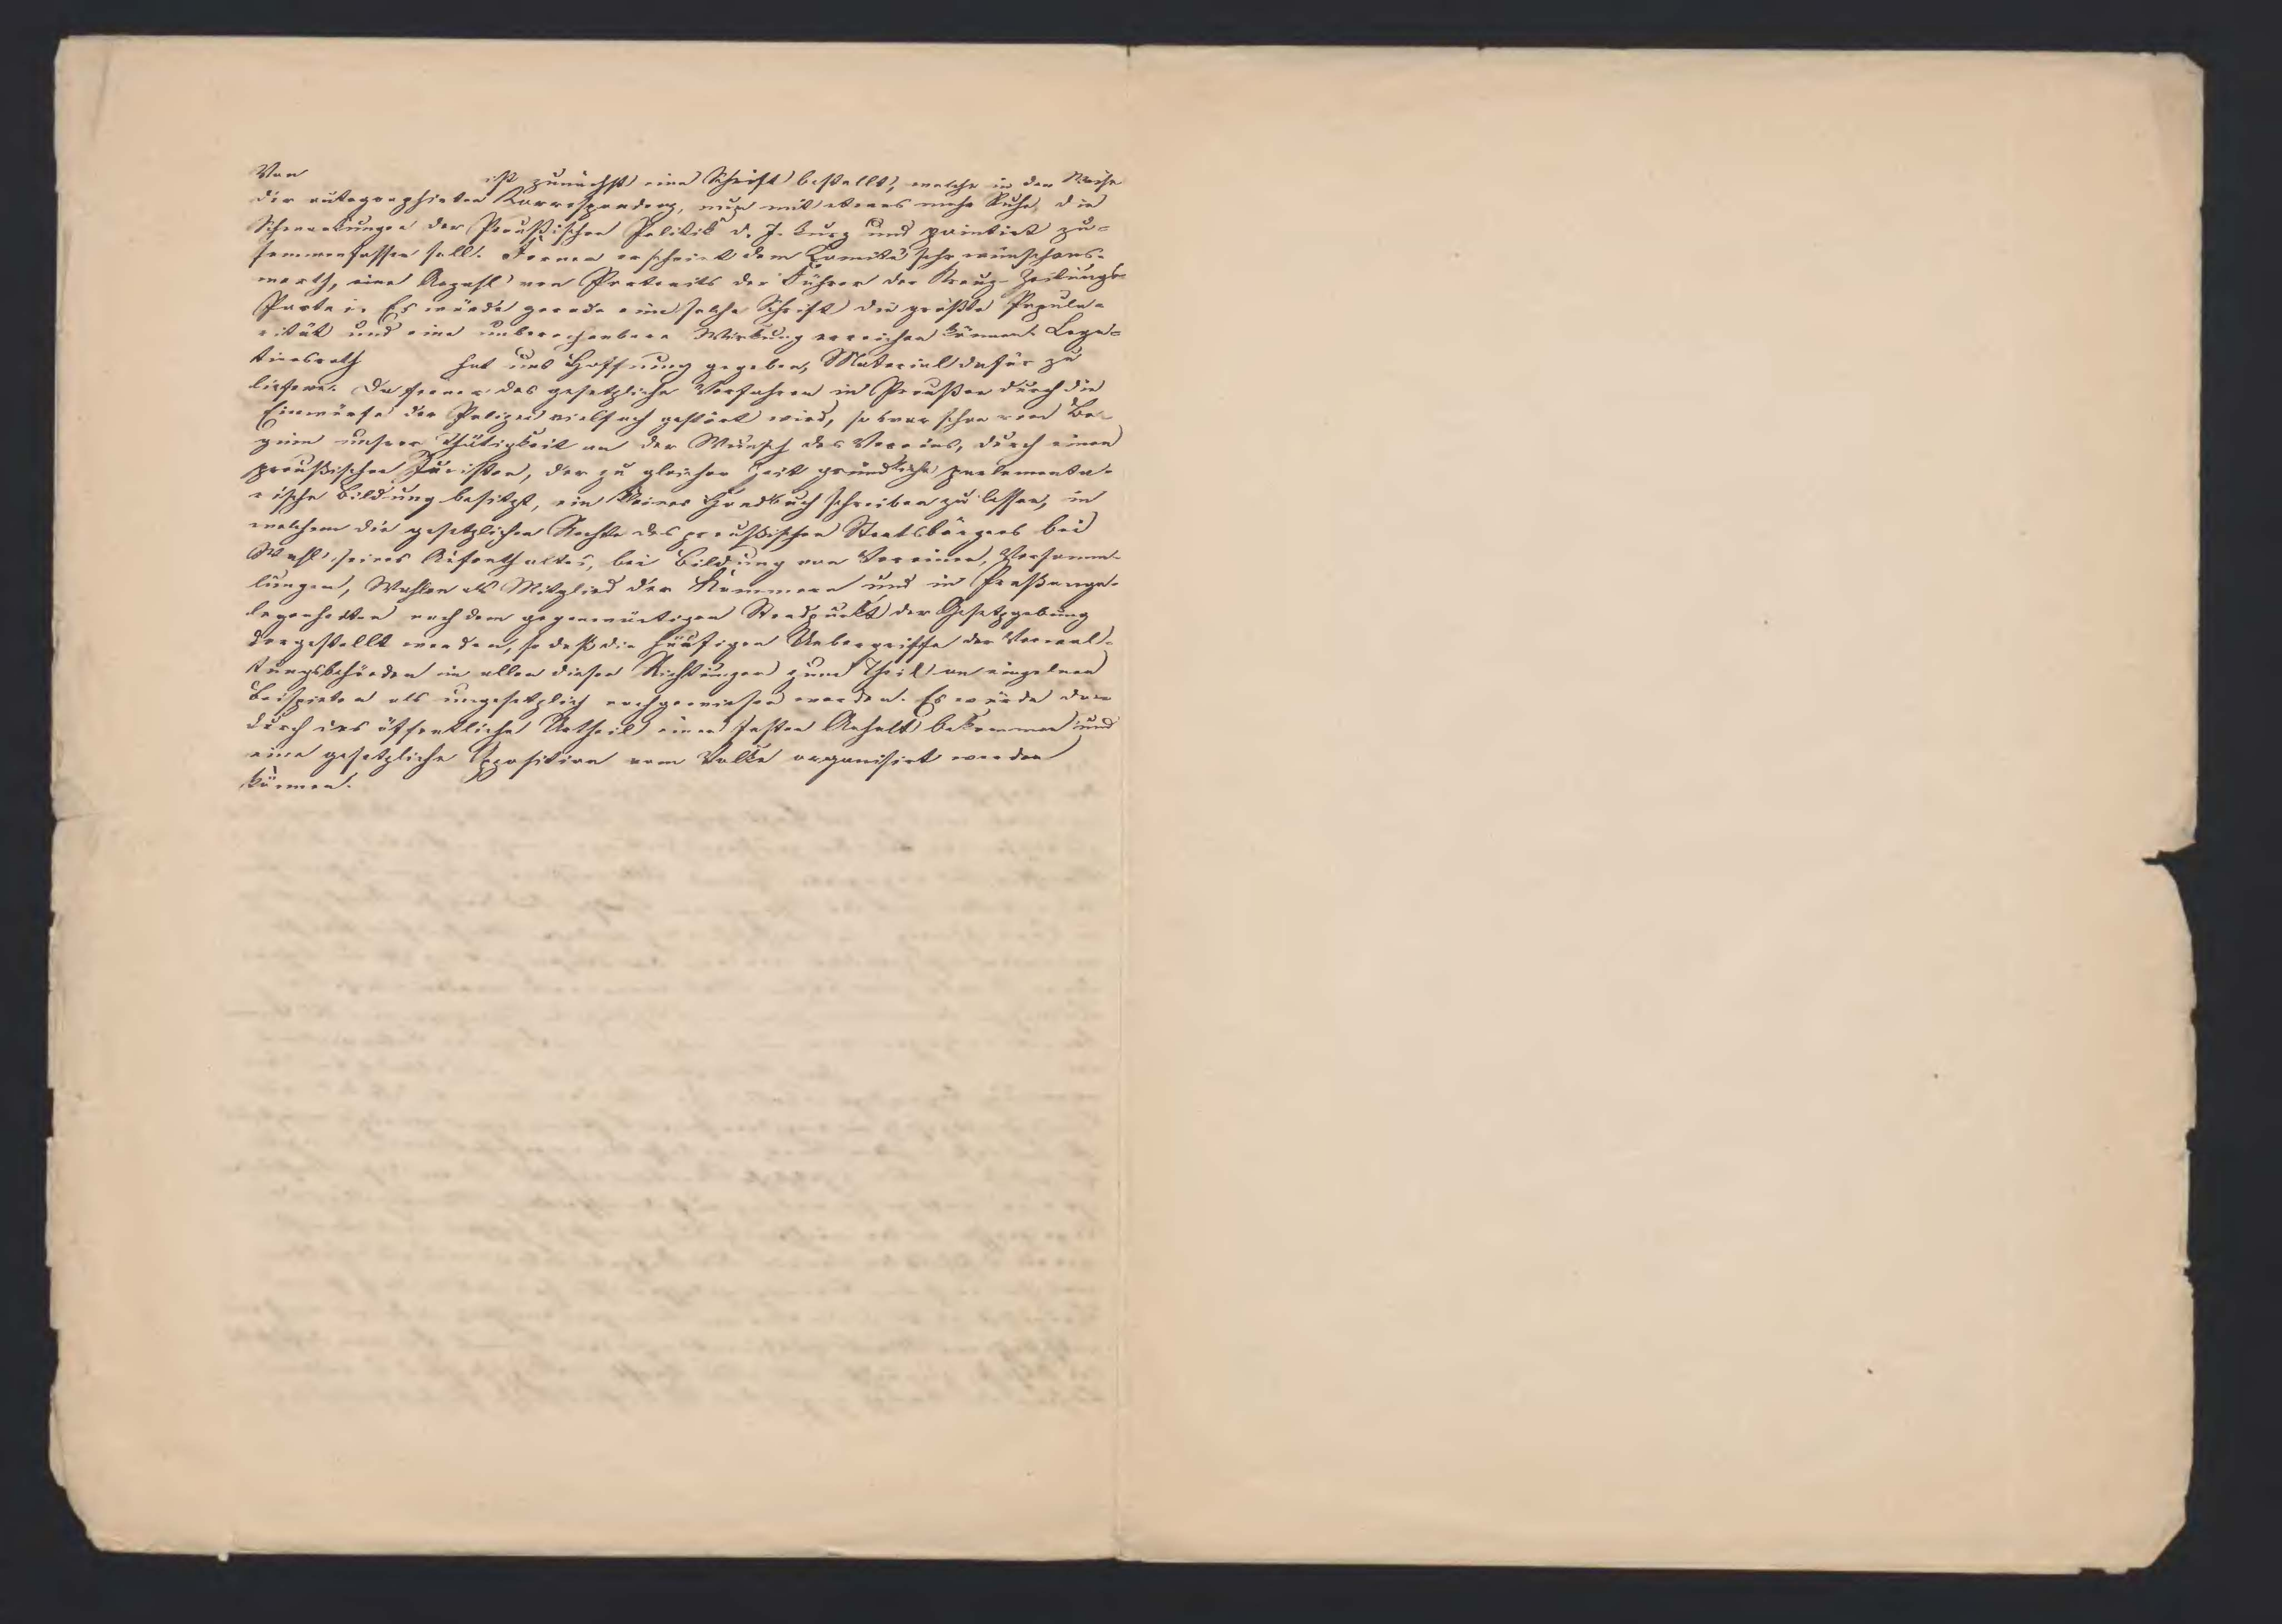 Von ist zunächst eine Schrift bestellt, welche in der Weise
der autographirten Korrespondenz, nur mit etwas mehr Ruhe, die
Schwankungen der Preußischen Politik d. J. kurz und pointirt zu-
sammenfassen soll. Ferner erscheint dem Comité sehr wünschens-
werth, eine Anzahl von Portraits der Führer der Kreuz-Zeitungs-
Partei. Es würde gerade eine solche Schrift die größte Popula-
rität und eine unberechenbare Wirkung erreichen können. Lega-
tionsrath hat uns Hoffnung gegeben, Material dafür zu
liefern. Da ferner das gesetzliche Verfahren in Preußen durch die
Einwürfe der Polizei vielfach gestört wird, so war schon von Be-
ginn unserer Thätigkeit an der Wunsch des Vereins, durch einen
preußischen Juristen, der zu gleicher Zeit gründliche parlamenta-
rische Bildung besitzt, ein kleines Handbuch schreiben zu lassen, in
welchem die gesetzlichen Rechte des preußischen Staatsbürgers bei
Wahl seines Aufenthaltes, bei Bildung von Vereinen, Versamm-
lungen, Wahlen als Mitglied der Kammern und in Preßange-
legenheiten nach dem gegenwärtigen Standpunkt der Gesetzgebung
dargestellt werden, so daß die häufigen Uebergriffe der Verwal-
tungsbehörden in allen diesen Richtungen zum Theil an einzelnen
Beispielen als ungesetzlich nachgewiesen werden. Es würde da-
durch das öffentliche Urtheil einen festen Anhalt bekommen und
eine gesetzliche Opposition vom Volke organisirt werden
können.